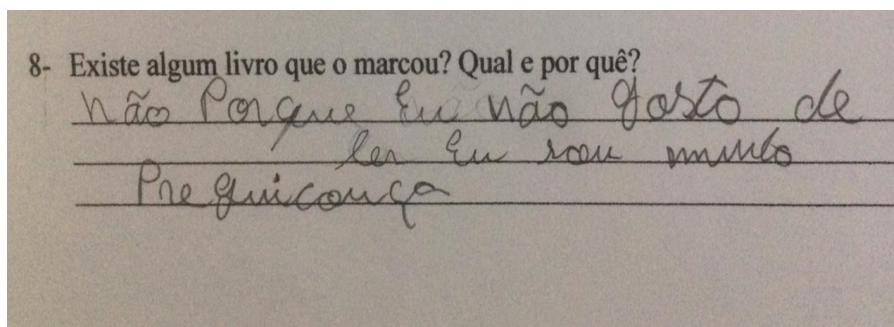 8- Existe algum livro que o marcou? Qual e por quê?
não Porque Eu não gosto de
ler Eu sou muito
Preguicouça